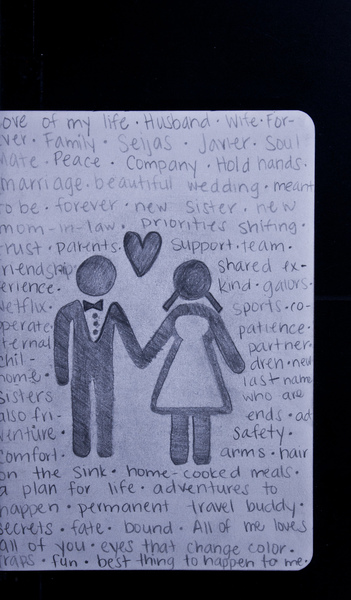 ove of my life • Husband • Wife • For-
ver • Family • Seijas • Javier • Soul
Mate • Peace • Company • Hold hands •
marriage • beautiful wedding • meant
to be • forever • new sister • new
mom-in-law • priorities shifting •
trust • parents • support • team •
friendship shared ex-
erience • kind • galors •
Netflix • sports • co-
perate patience •
ternal partner •
chil- dren • new
home • last name
sisters who are
also fri- ends • ad
venture • safety •
comfort • arms • hair
on the sink • home-cooked meals •
a plan for life • adventures to
happen • permanent travel buddy •
secrets • fate • bound • All of me loves
all of you • eyes that change color •
raps • fun • best thing to happen to me •